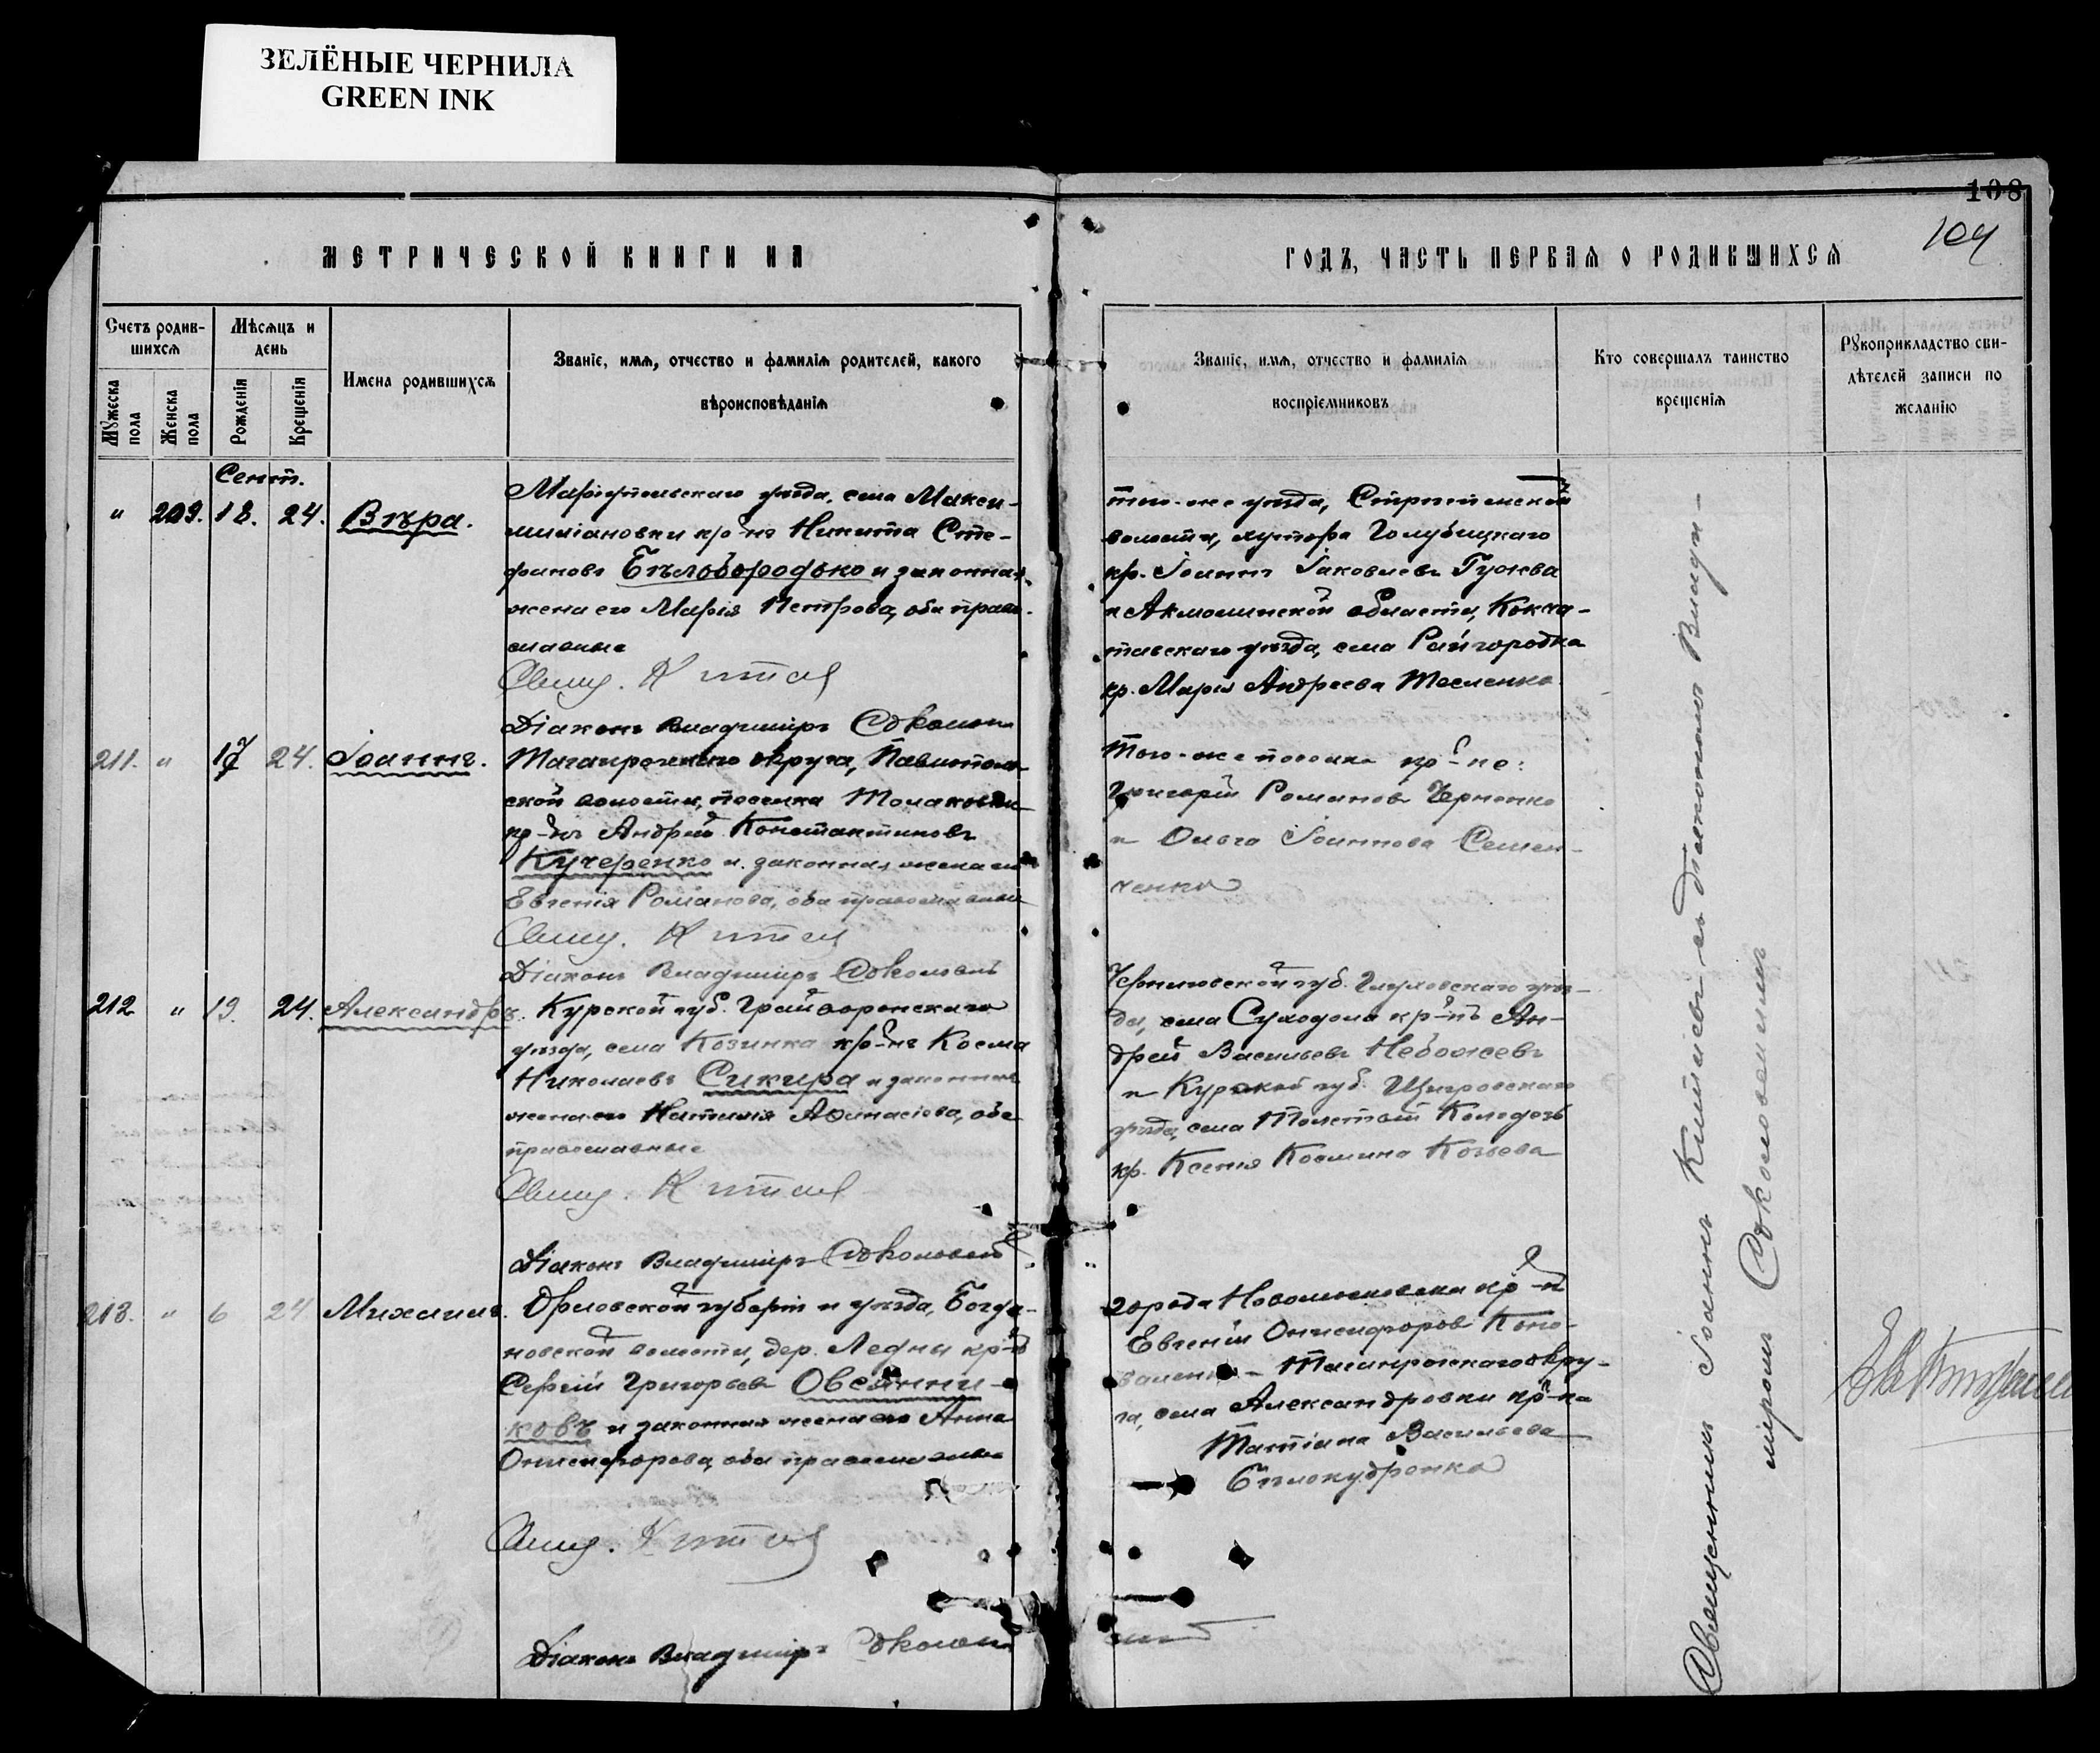 ЗЕЛЁНЫЕ ЧЕРНИЛА
GREEN INK
108
104
МЕТРИЧЕСКОЙ КНИГИ НА
ГОДЪ, ЧАСТЬ ПЕРВАЯ О РОДИВШИХСЯ
Счетъ родив-
шихся
Мужеска
пола
Женска
пола
Мѣсяцъ и
день
Рожденія
Крещенія
Имена родившихся
Званіе, имя, отчество и фамилія родителей, какого
вѣроисповѣданія
Званіе, имя, отчество и фамилія
воспріемниковъ
Кто совершалъ таинство
крещенія
Рукоприкладство сви-
дѣтелей записи по
желанію
Сент.
" 209. 18. 24. Вѣра.
Маріупольскаго уѣзда, села Макси-
миліановки кр-нъ Никита Сте-
фановъ Бѣлобородько и законная
жена его Марія Петрова, оба право-
славные
Свящ. Китаев
Діаконъ Владиміръ Соколов
того-же уѣзда,
волости, хутора Голубицкаго
кр. Іоаннъ Іаковлевъ Гужева
и Акмолинской области, Кокче-
тавскаго уѣзда, села Райгородка
кр. Марія Андреева Тесленко
211. " 17 24. Іоаннъ.
Таганрогскаго округа,
ской волости, поселка
кр-нъ Андрей Константиновъ
Кучеренко и законная жена его
Евгенія Романова, оба православные
Свящ. Китаев
Діаконъ Владиміръ Соколовъ
Того-же поселка кр-не:
Григорій Романовъ Черненко
и Ольга Іоаннова Семен-
ченко
212 " 19. 24. Александръ.
Курской губ. Грайворонскаго
уѣзда, села Козинка кр-нъ Косма
Николаевъ Сикира и законная
жена его Наталія Аѳанасіева, оба
православные
Свящ. Китаев
Діаконъ Владиміръ Соколовъ
Черниговской губ. Глуховскаго уѣз-
да, села Суходола кр-нъ Ан-
дрей Васильевъ Небожевъ
и Курской губ. Щигровскаго
уѣзда, села Толстый Колодезь
кр. Ксенія Космина Козьева
213. " 6 24 Михаилъ.
Орловской губерніи и уѣзда, Богда-
новской волости, дер. Ледны кр-нъ
Сергій Григорьевъ Овсянни-
ковъ и законная жена его Анна
Онисифорова, оба православные
Свящ. Китаев
Діаконъ Владиміръ Соколов
города Новомосковска кр-нъ
Евгеній Онисифоровъ Коно-
валенко - Таганрогскаго окру-
га, села Александровки кр-ка
Татіана Васильева
Бѣлокудренко
Священникъ Іоаннъ Китаевъ съ діакономъ Влади-
міромъ Соколовымъ